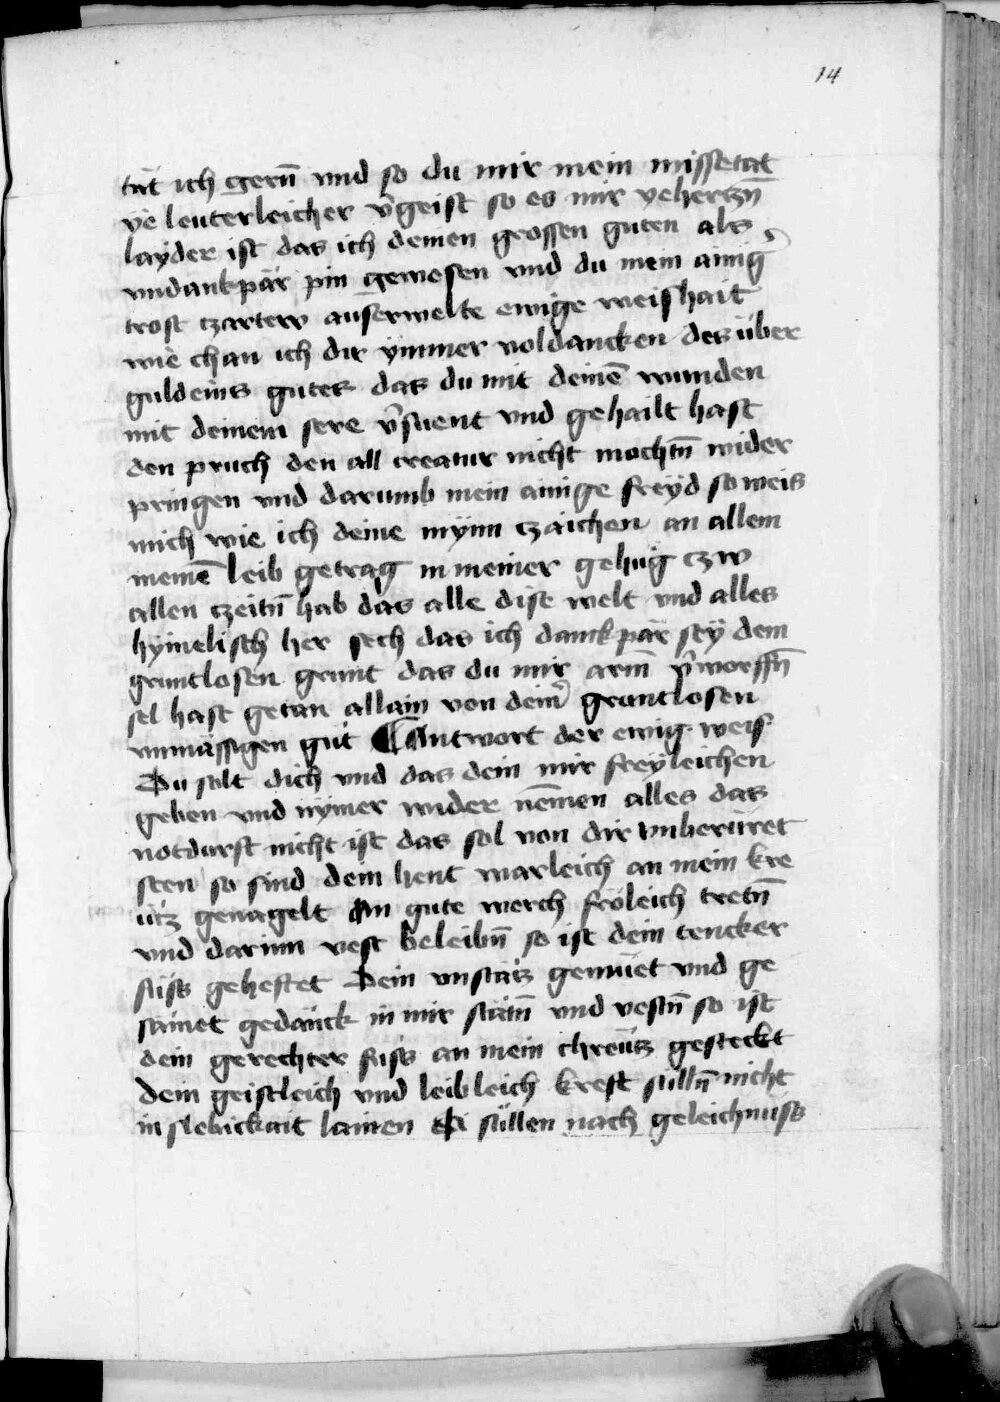 14
tät ich gern̄ vnd so du mir mein missetat
ye leuterleicher v̄geist so es mir ye hertzn̄
layder ist das ich deinen grossen guten als
vndankpär pin gewesen vnd du mein ainig
trost czarterw auserwelte ewige weishait
wie chan ich dir ymmer voldancken des über
guldeins gutes das du mit deinē wunden
mit deinem sere v̄suent vnd gehailt hast
den pruch den all creatur nicht mochtn̄ wider
pringen vnd darumb mein ainige freyd so weis
mich wie ich deine mynn czaichen an allem
meinē leib getrag in meiner gehug czw
allen czeitn̄ hab das alle dise welt vnd alles
hymelisch her sech das ich dankpär sey dem
gruntlosen grunt das du mir armn̄ v̄worffn̄
sel hast getan allain von deiner gruntlosen
vnmässigen gut Antwort der ewig weis
Du solt dich vnd das dein mir freyleichen
geben vnd nymer wider nēmen alles das
notdurft nicht ist das sol von dir vnberüret
sten so sind dein hent warleich an mein kre
ütz genagelt An gute werch fröleich tretn̄
vnd darinn vest beleibn̄ so ist dein tencker
füss geheftet Dein vnstätz gemüet vnd ge
säinet gedänck in mir stätn̄ vnd vestn̄ so ist
dein gerechter fuss an mein chreütz gesteckt
Dein geistleich vnd leibleich kreft sülln̄ nicht
in slebickait lainen Si süllen nach geleichnuss